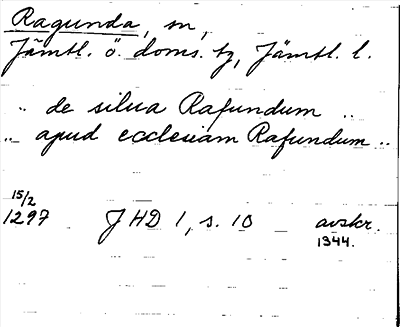 Ragunda, sn,
Jämtl. ö. doms. tg, Jämtl. l.
.. de silua Rafundum ..
.. apud ecclesiam Rafundum ..
15/2
1297 JHD 1, s. 10 avskr.
1344.